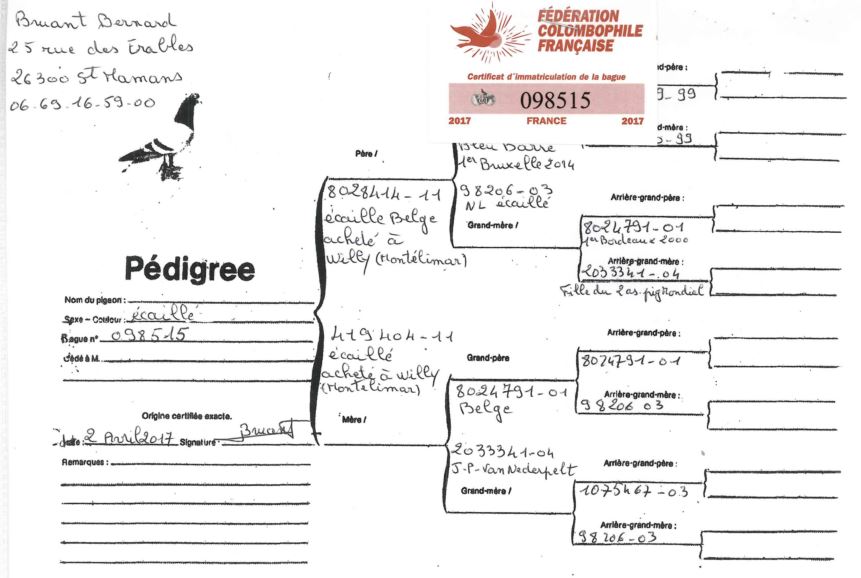 Bruant Bernard
25 rue des Érables
26300 St Mamans
06.69.16-59-00
FÉDÉRATION
COLOMBOPHILE
FRANÇAISE
Certificat d'immatriculation de la bague
098515
2017 FRANCE 2017
nd-père :
9-99
d-mère :
-99
Père /
Bleu Barré
1er Bruxelle 2014
8028414-11
écaille Belge
acheté à
Willy (Montélimar)
98206-03
NL écaillé
Grand-mère /
Arrière-grand-père :
8024791-01
1er Bordeaux 2000
Arrière-grand-mère :
2033341-04
Fille du 2as. pig Mondial
Pédigree
Nom du pigeon :
Sexe - Couleur : écaillé
Bague n° 098515
Cédé à M.
419404-11
écaillé
acheté à Willy
(Montélimar)
Mère /
Grand-père
8024791-01
Belge
Arrière-grand-père :
8024791-01
Arrière-grand-mère :
98206 03
Origine certifiée exacte.
Date : 2 Avril 2017 Signature Bruant
Remarques :
2033341-04
J-P-Van Nederpelt
Grand-mère /
Arrière-grand-père :
1075467-03
Arrière-grand-mère :
98206-03